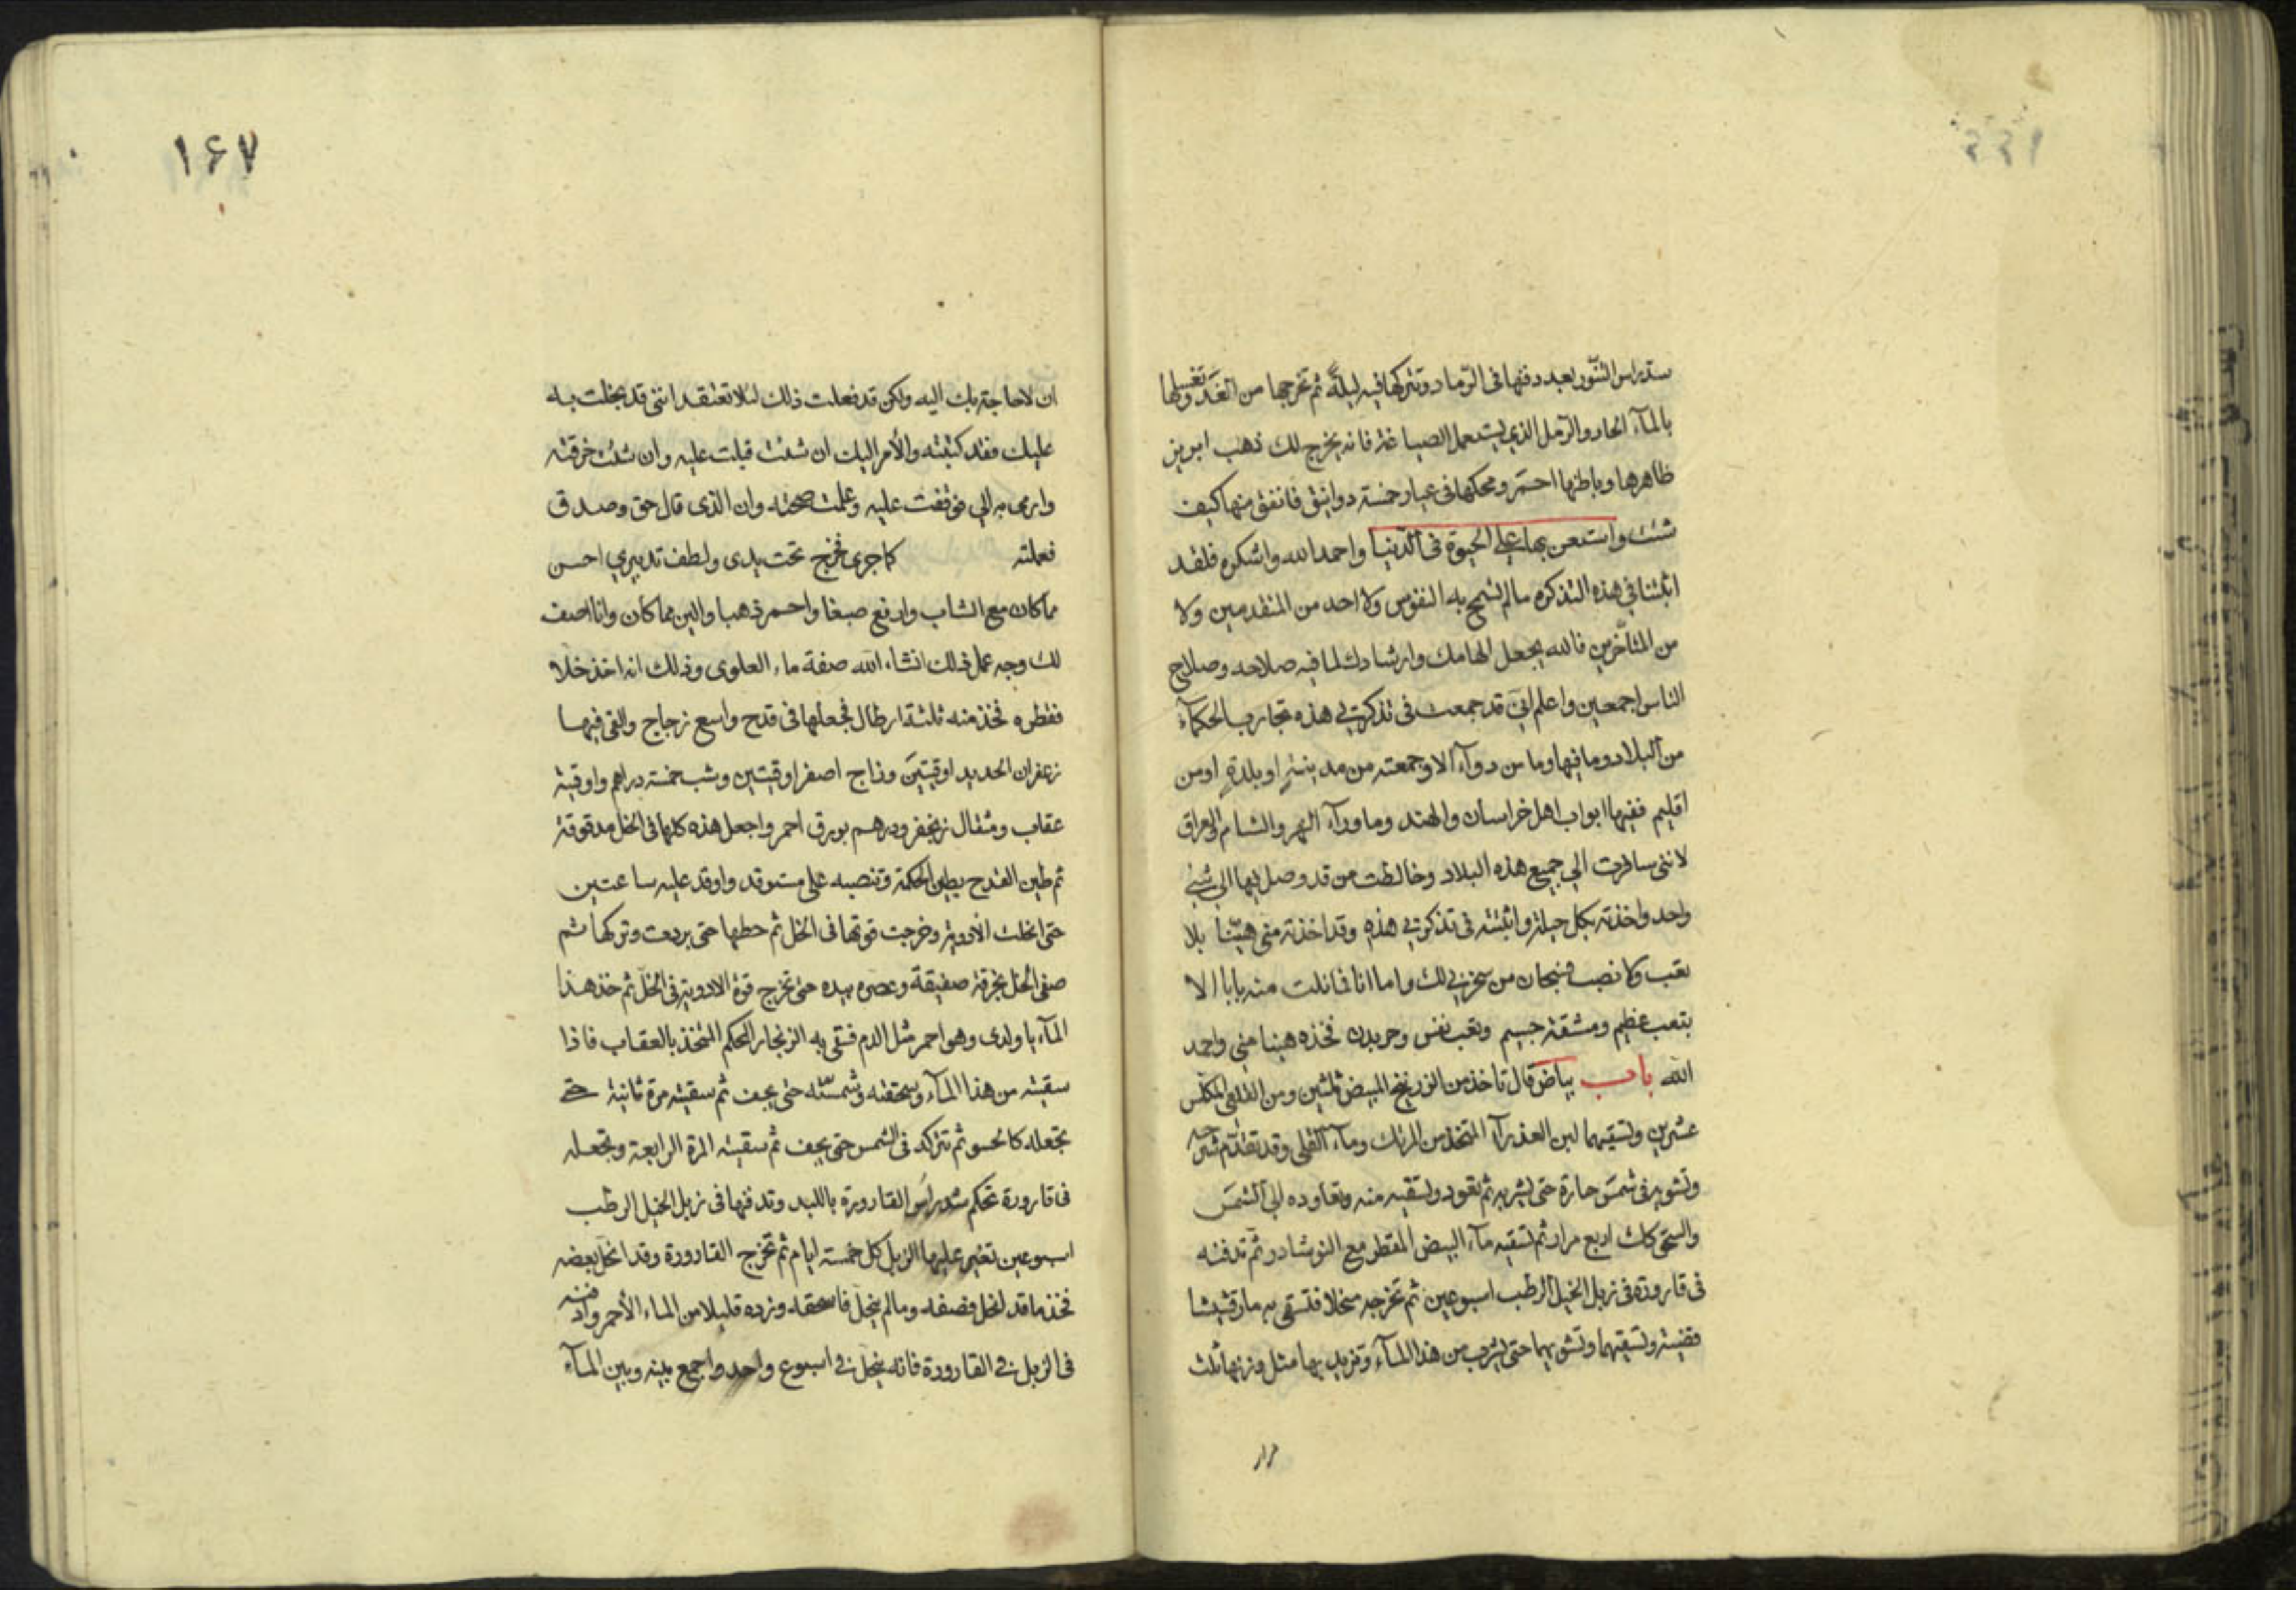 ستد راس التنور بعد دفنها فى الرماد وتتركها فيه ليلة ثم تخرجها من الغد وتغسلها
بالمآء الحار والرمل الذي يستعمل الصياغة فانه يخرج لك ذهب ابريز
ظاهرها وباطنها احمر ومحكها فى عيار خمسة دوانيق فانفق منها كيف
شئت واستعن بها علي الحيوة فى الدنيا واحمد الله واشكره فلقد
اثبتنا فى هذه التذكره ما لم تسمح به النفوس ولا احد من المتقدمين ولا
من المتأخرين فالله يجعل الهامك وارشادك لما فيه صلاحه وصلاح
الناس اجمعين واعلم انى قد جمعت فى تذكرتي هذه تجارب الحكمآء
من البلاد وما فيها وما من دوآء الا وجمعته من مدينة او بلدة او من
اقليم ففيها ابواب اهل خراسان والهند وما ورآء النهر والشام والعراق
لاننى سافرت الي جميع هذه البلاد وخالطت من قد وصل فيها الي شيئ
واحد واخذته بكل حيلة واثبته فى تذكرتي هذه وقد اخذته منى هينا بلا
تعب ولا نصب فسبحان من سخرني لك واما انا فما نلت منه بابا الا
بتعب عظيم ومشقة جسيم وتعب نفس وحر بدن فخذه هينا مني واحمد
الله باب بياض قال تاخذ من الزرنيخ المبيض ثلثين ومن الطلق المكلس
عشرين وتسقيهما لبن العذرآء المتخذ من المرتك ومآء القلى وقد تقدم شرحه
وتشويه فى شمس حارة حتى يشربه ثم تعود وتسقيه منه وتعاوده الي الشمس
والسحق كك اربع مرار ثم تسقيه مآء البيض المقطر مع النوشادر ثم تدفنه
فى قارورة فى زبل الخيل الرطب اسبوعين ثم تخرجه منحلا فتسقى به مارقشيشا
فضية وتسقيها وتشويها حتى يشرب من هذا المآء وتزيد بها مثل وزنها ثلث
١٦٧
ان لا حاجة بك اليه ولكن قد فعلت ذلك لئلا تعتقد اننى قد بخلت به
عليك فقد كتبته والأمر اليك ان شئت قبلت عليه وان شئت خرقته
وارمى به الي فوقفت عليه وعلمت صحته وان الذى قال حق وصدق
فعلته كما جرى فخرج تحت يدى ولطف تدبيري احسن
مما كان مع الشاب وارفع صبغا واحمر ذهبا والين مما كان وانا اصف
لك وجه عمل ذلك انشاء الله صفة ماء العلوى وذلك انه اخذ خلا
فقطره فخذ منه ثلثة ارطال فجعلها فى قدح واسع زجاج والقى فيها
زعفران الحديد اوقيتين وزاج اصفر اوقيتين وشب خمسة دراهم واوقية
عقاب ومثقال زنجفر ودرهم بورق احمر واجعل هذه كلها فى الخل مدقوقة
ثم طين القدح بطين الحكمة وتنصبه على مستوقد واوقد عليه ساعتين
حتى انحلت الأدوية وخرجت قوتها فى الخل ثم حطها حتى بردت وتركها ثم
صفى الخل بخرقة صفيقة وعصره بيده حتى تخرج قوة الادوية فى الخل ثم خذ هذا
المآء يا ولدى وهو احمر مثل الدم فتسقى به الزنجار المحكم المتخذ بالعقاب فاذا
سقيته من هذا المآء وسحقته وشمسته حتى يجف ثم سقيته مرة ثانية حتى
تجعله كالحسو ثم تتركه فى الشمس حتى يجف ثم سقيته المرة الرابعة وتجعله
فى قارورة تحكم شد راس القارورة باللبد وتدفنها فى زبل الخيل الرطب
اسبوعين تغير عليها الزبل كل خمسة ايام ثم تخرج القارورة وقد انحل بعضه
فخذ ما قد انحل فصفه وما لم ينحل فاسحقه وزده قليلا من الماء الأحمر وادفنه
فى الزبل في القارورة فانه ينحل في اسبوع واحد واجمع بينه وبين المآء